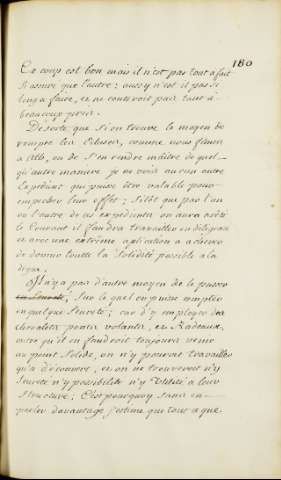 180
Ce coup est bon mais il n'est pas tout a fait
si assuré que l'autre; aussy n'est il pas si
long a faire, et ne conteroit pas tant a
beaucoup près.
De sorte que si on trouve le moyen de
rompre les Ecluses, comme nous fimes
a Ath, ou de s'en rendre maitre de quel-
qu'autre maniere je ne vois aucun autre
Expedient qui puisse être valable pour
empecher leur effet; sitôt que par l'un
ou l'autre de ces expedients on aura arêté
le Courant il faudra travailler en diligence
et avec une extrême aplication a achever
de donner toutte la solidité possible a la
digue.
Il n'y a pas d'autre moyen de le passer
en seureté, sur le quel on puisse compter
en quelque seureté; car d'y employer des
chevalets pontés volants, et Radeaux,
outre qu'il en faudroit toujours venir
au point solide, on n'y pouroit travailler
qu'a découvert, et on ne trouveroit n'y
seureté n'y possibilité n'y Utilité a leur
structure; C'est pourquoy sans en
parler davantage j'estime que tout a que